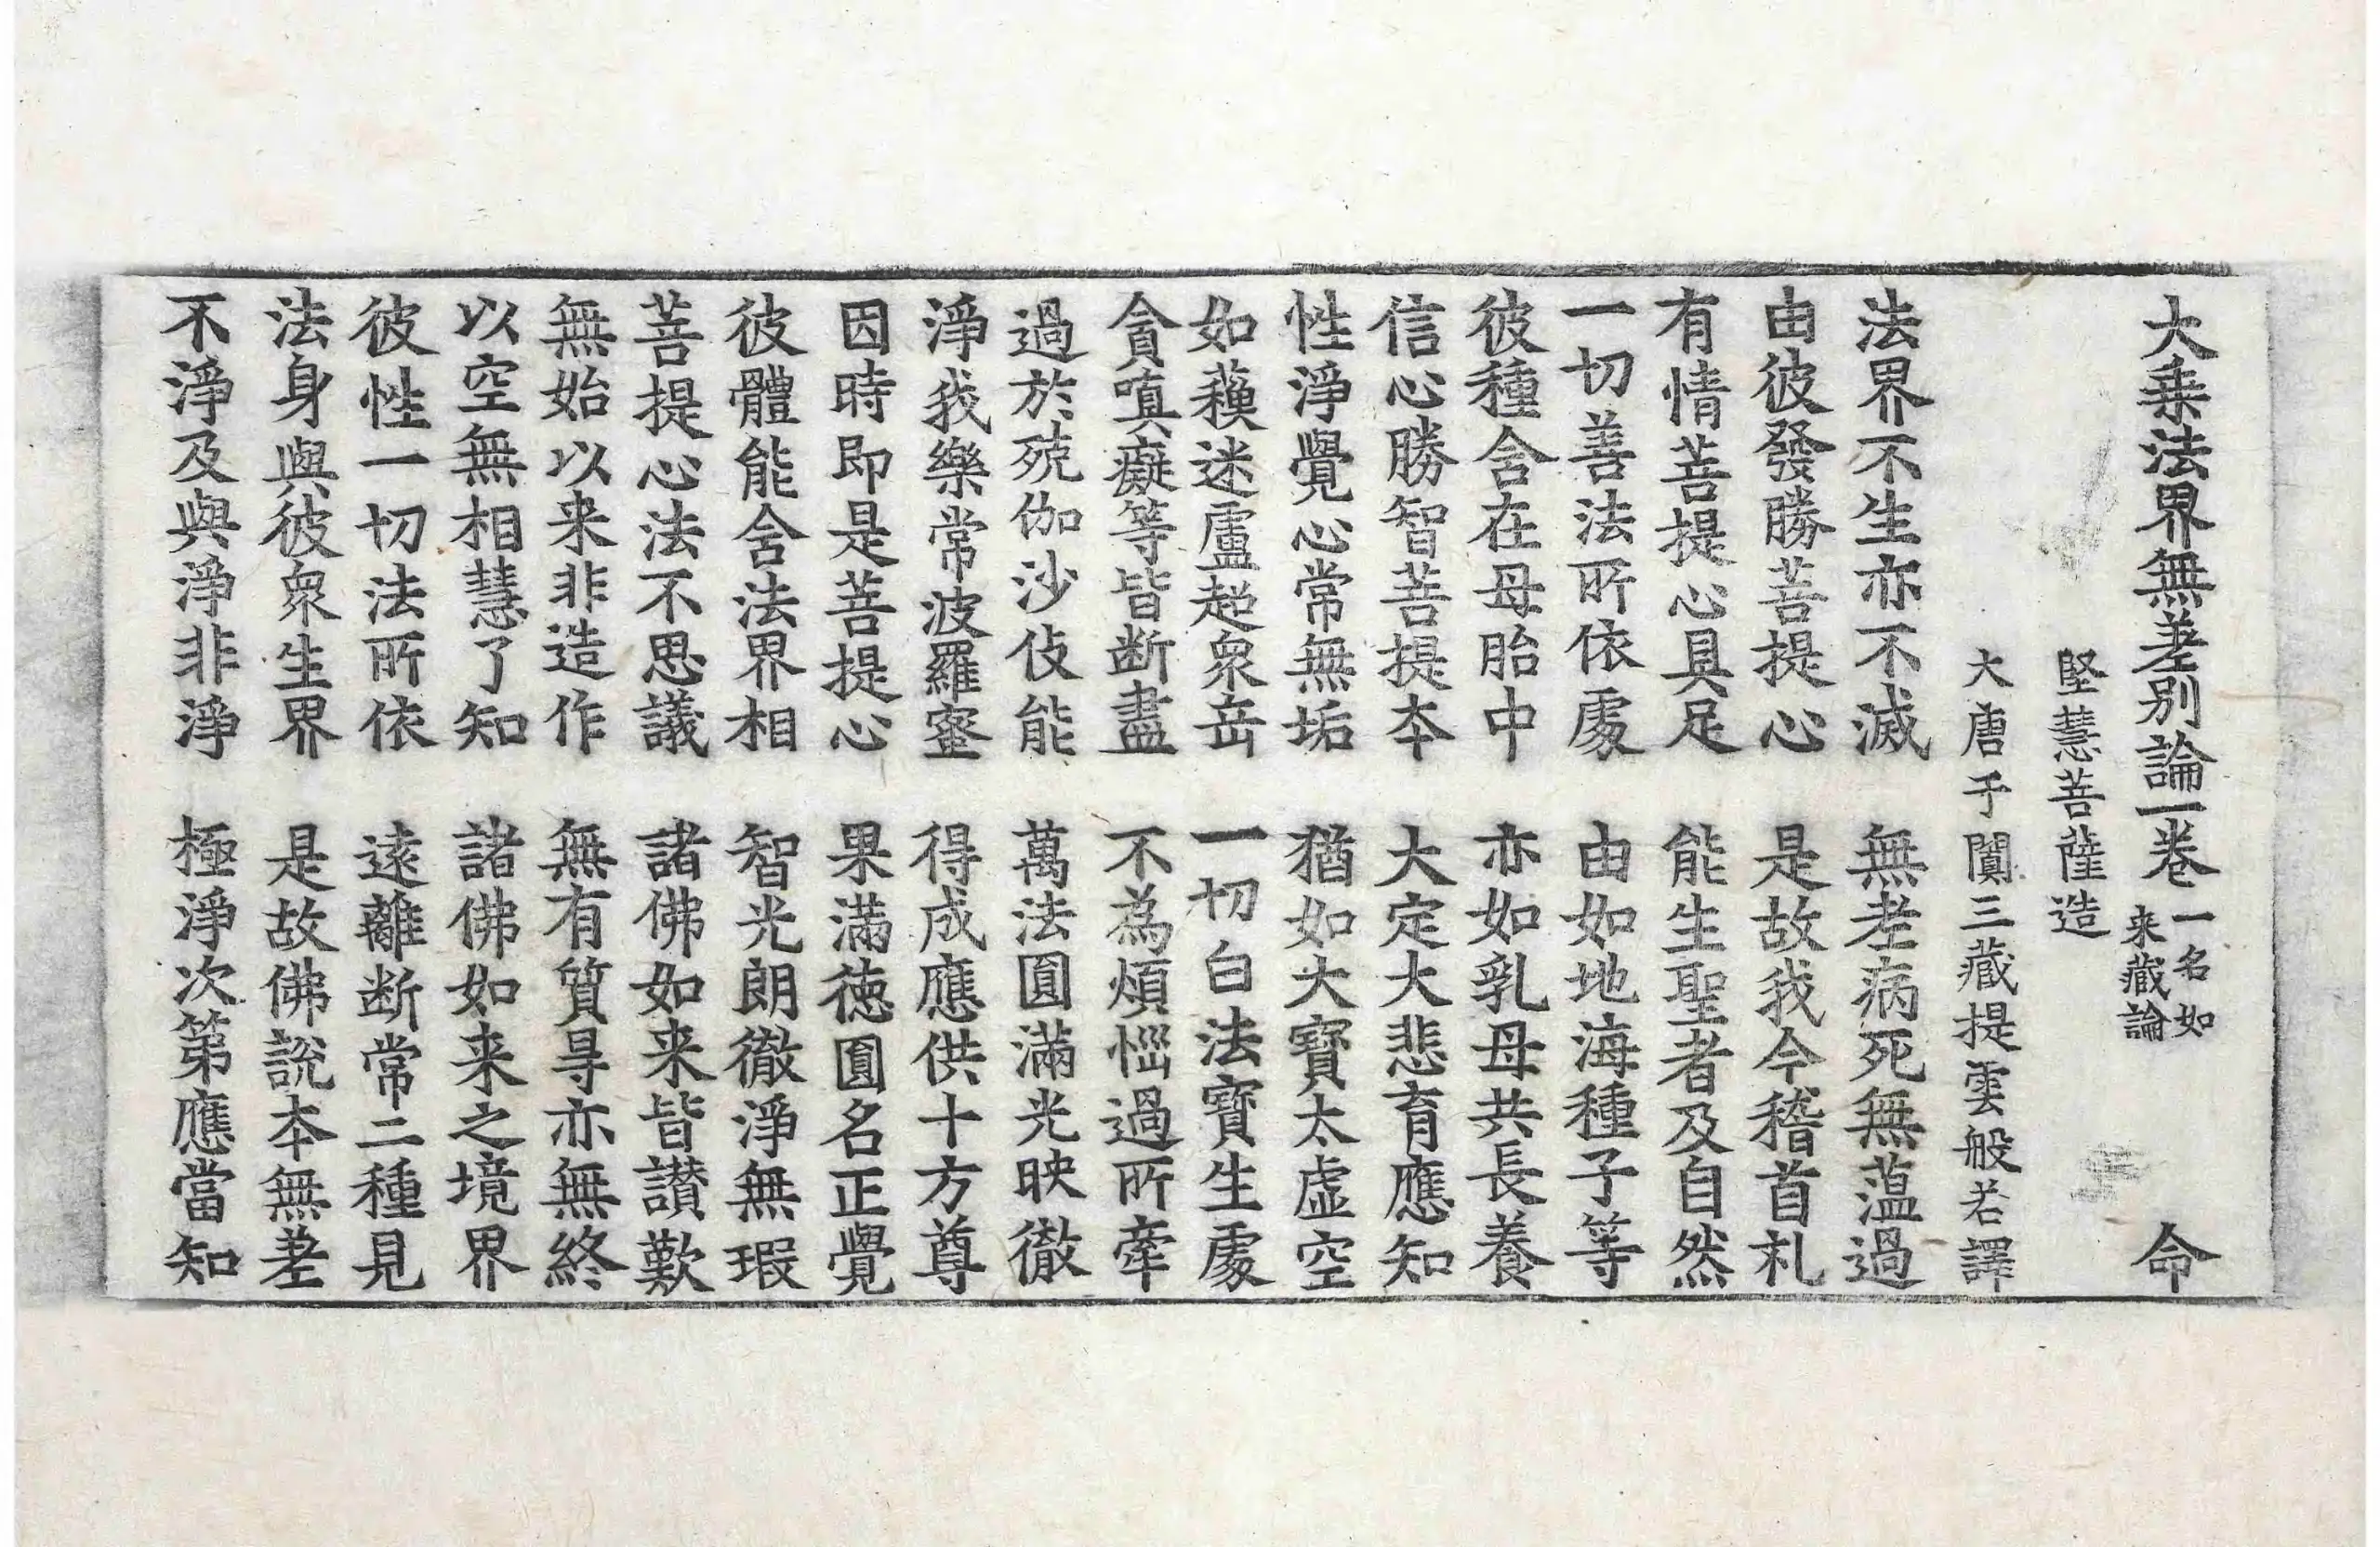 大乗法界無差別論一卷 一名如来藏論 命
堅慧菩薩造
大唐于闐三藏提雲般若譯
法界不生亦不滅 無老病死無薀過
由彼發勝菩提心 是故我今稽首礼
有情菩提心具足 能生聖者及自然
一切善法所依處 由如地海種子等
彼種含在母胎中 亦如乳母共長養
信心勝智菩提本 大定大悲育應知
性淨覺心常無垢 猶如大寶太虛空
如蘓迷盧超衆岳 一切白法寶生處
貪嗔癡等皆断盡 不為煩惱過所牽
過於殑伽沙伎能 萬法圓滿光映徹
淨我樂常波羅蜜 得成應供十方尊
因時即是菩提心 果滿徳圓名正覺
彼體能含法界相 智光朗徹淨無瑕
菩提心法不思議 諸佛如来皆讃歎
無始以来非造作 無有質㝵亦無終
以空無相慧了知 諸佛如来之境界
彼性一切法所依 遠離断常二種見
法身與彼衆生界 是故佛説本無差
不淨及與淨非淨 極淨次第應當知